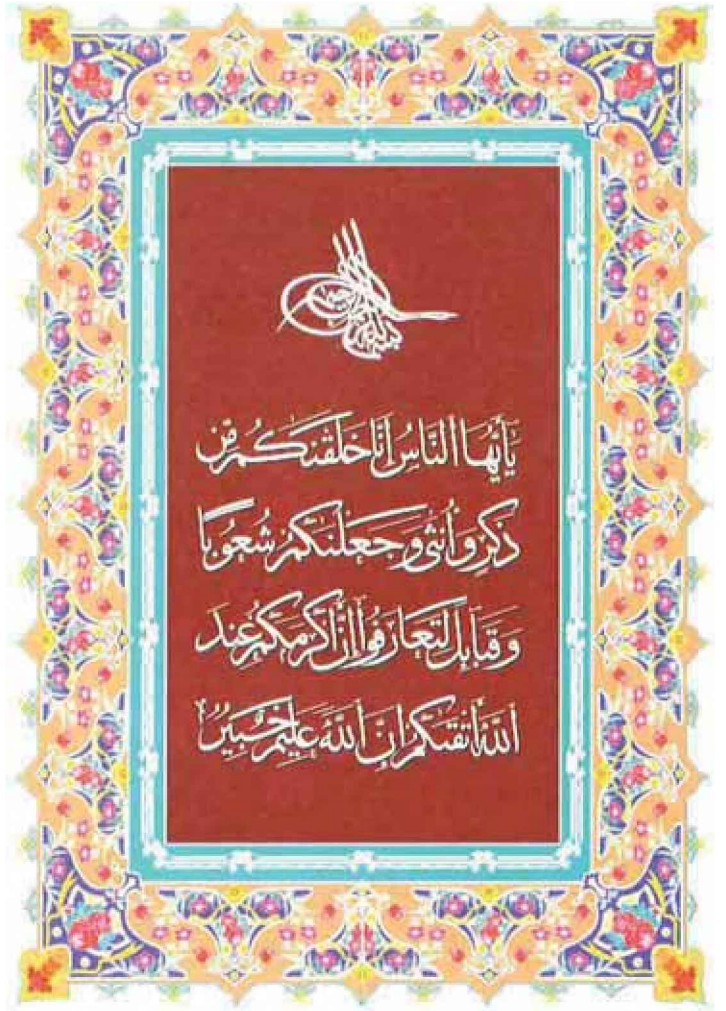 بسم الله الرحمن الرحيم
يَٰٓأَيُّهَا ٱلنَّاسُ إِنَّا خَلَقْنَٰكُم مِّن
ذَكَرٍ وَأُنثَىٰ وَجَعَلْنَٰكُمْ شُعُوبًا
وَقَبَآئِلَ لِتَعَارَفُوٓا۟ إِنَّ أَكْرَمَكُمْ عِندَ
ٱللَّهِ أَتْقَىٰكُمْ إِنَّ ٱللَّهَ عَلِيمٌ خَبِيرٌ